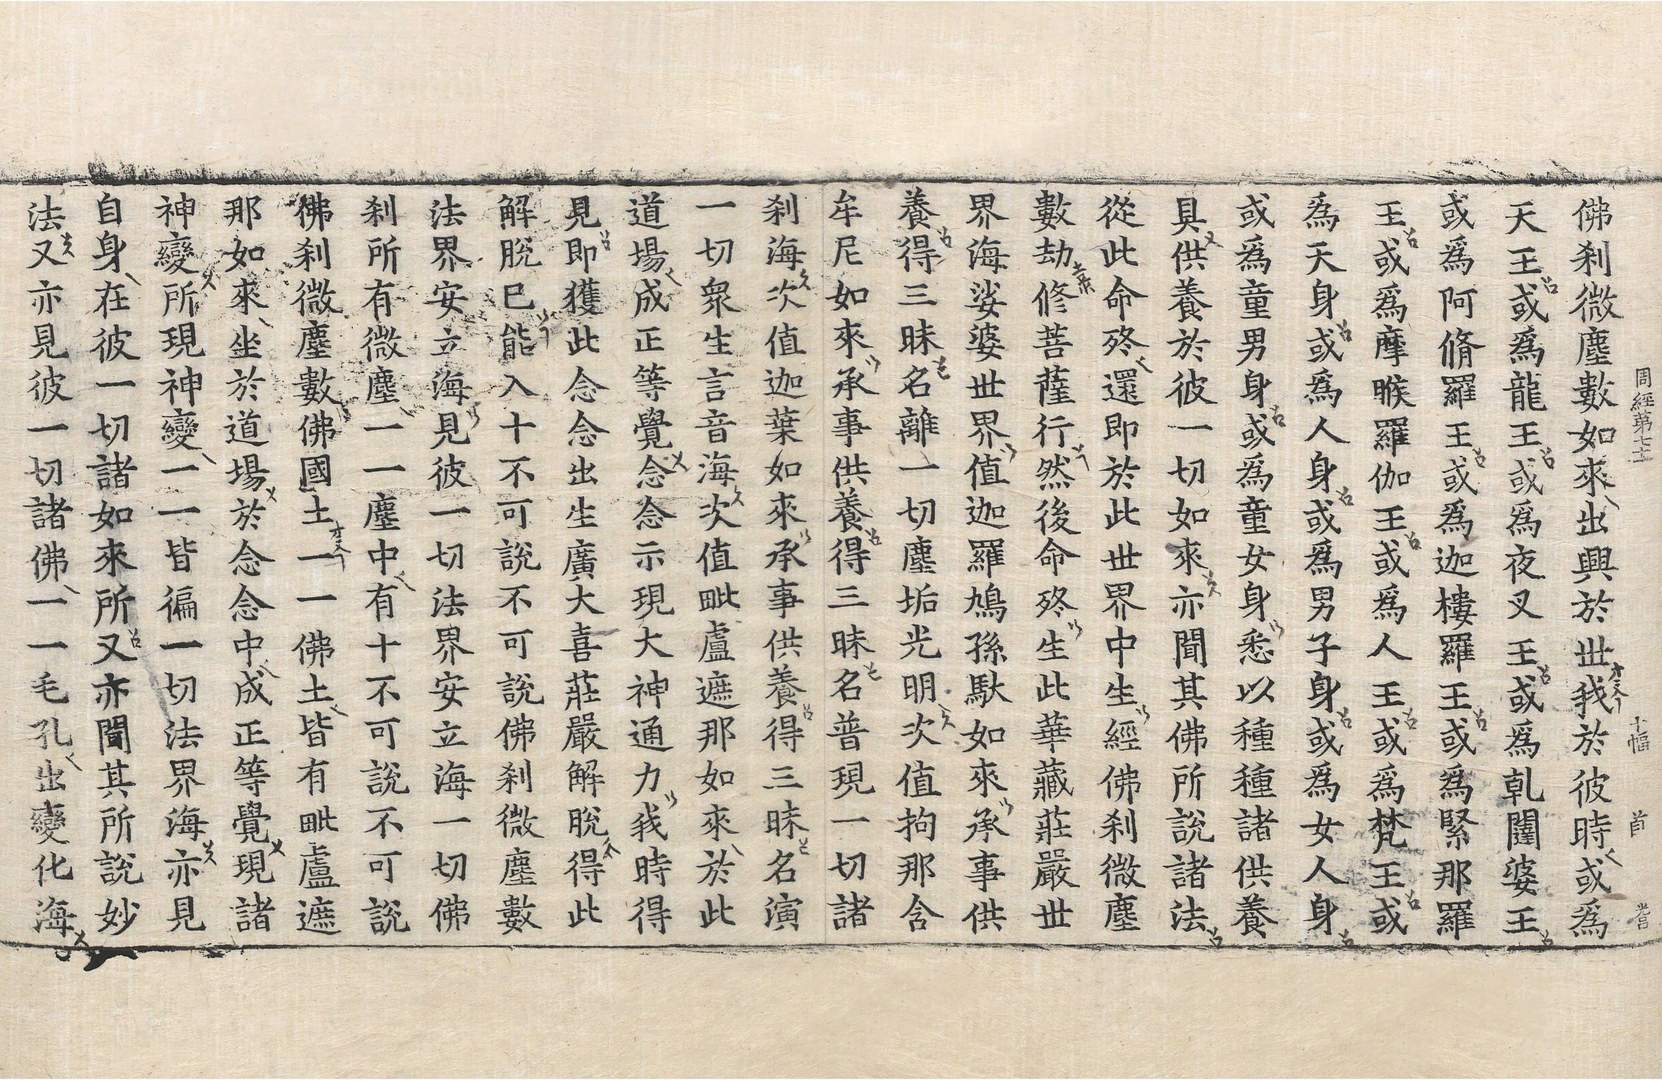 周經第七十三 十幅 首 嘗
佛刹微塵數如來出興於世我於彼時或爲
天王或爲龍王或爲夜叉王或爲乹闥婆王
或爲阿脩羅王或爲迦樓羅王或爲緊那羅
王或爲摩睺羅伽王或爲人王或爲梵王或
爲天身或爲人身或爲男子身或爲女人身
或爲童男身或爲童女身悉以種種諸供養
具供養於彼一切如來亦聞其佛所說諸法
從此命終還即於此世界中生經佛刹微塵
數劫修菩薩行然後命終生此華藏莊嚴世
界海娑婆世界值迦羅鳩孫馱如來承事供
養得三昧名離一切塵垢光明次值拘那含
牟尼如來承事供養得三昧名普現一切諸
刹海次值迦葉如來承事供養得三昧名演
一切衆生言音海次值毗盧遮那如來於此
道場成正等覺念念示現大神通力我時得
見即獲此念念出生廣大喜莊嚴解脫得此
解脫已能入十不可說不可說佛刹微塵數
法界安立海見彼一切法界安立海一切佛
刹所有微塵一一塵中有十不可說不可說
佛刹微塵數佛國土一一佛土皆有毗盧遮
那如來坐於道場於念念中成正等覺現諸
神變所現神變一一皆徧一切法界海亦見
自身在彼一切諸如來所又亦聞其所說妙
法又亦見彼一切諸佛一一毛孔出變化海